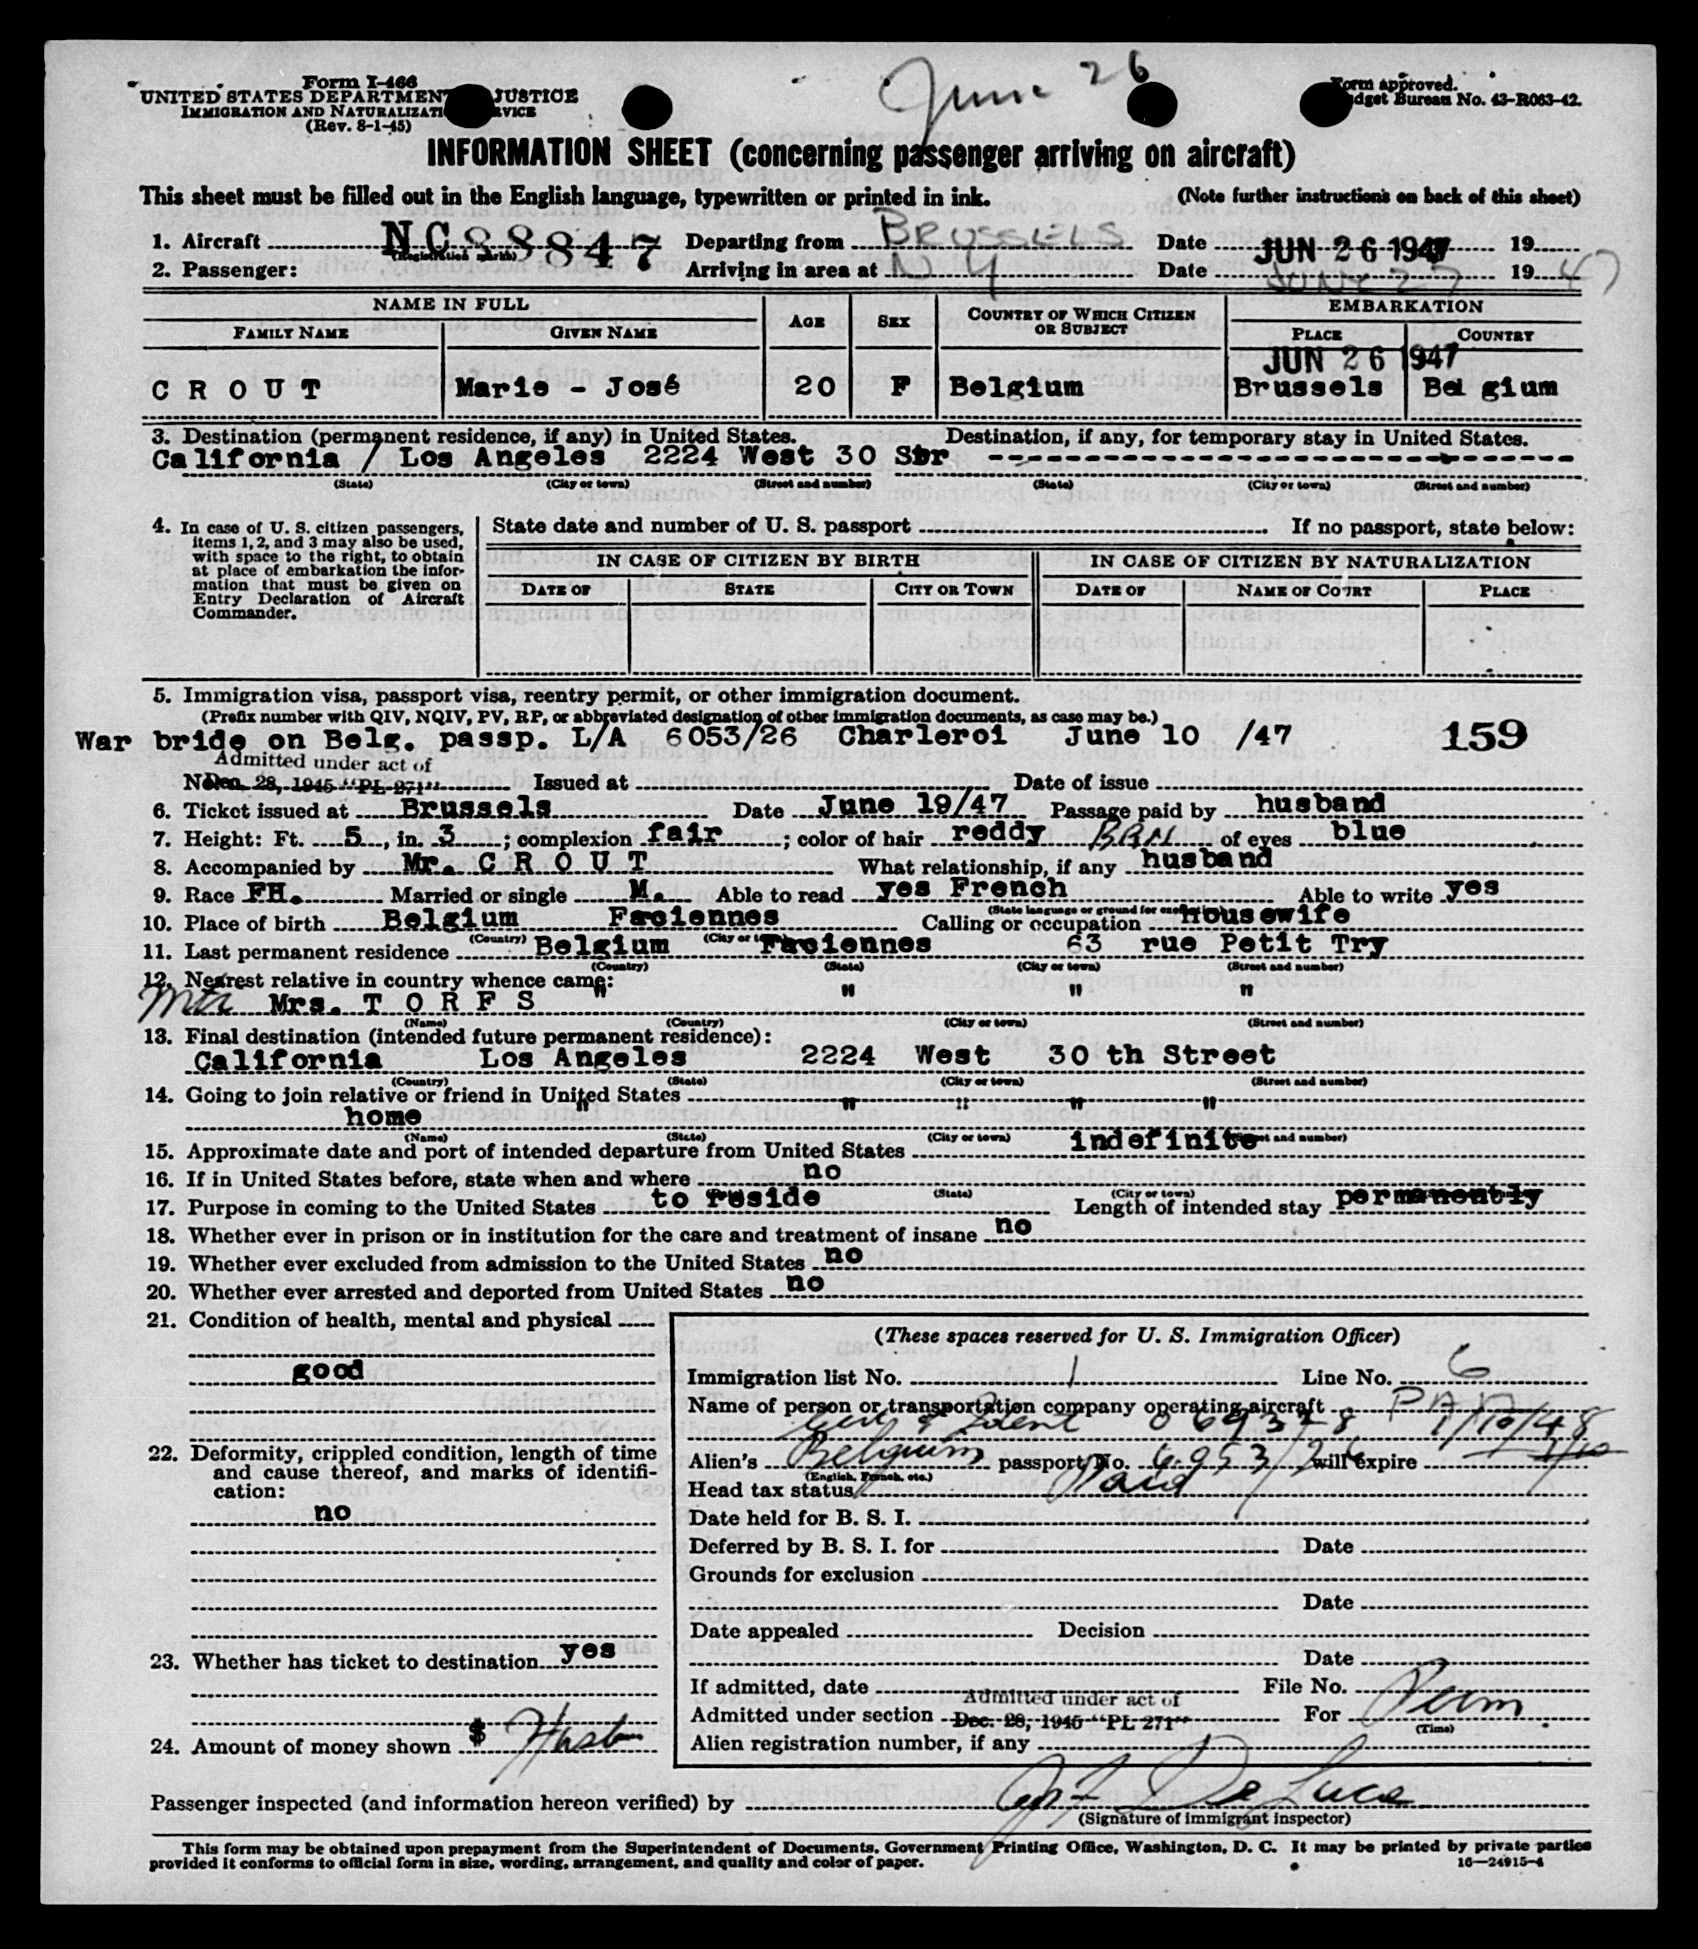 June 26
Form I-466
UNITED STATES DEPARTMENT JUSTICE
IMMIGRATION AND NATURALIZATI RVICE
(Rev. 8-1-45)
Form approved.
dget Bureau No. 43-R063-42.
INFORMATION SHEET (concerning passenger arriving on aircraft)
This sheet must be filled out in the English language, typewritten or printed in ink. (Note further instructions on back of this sheet)
1. Aircraft NC88847 Departing from BRUSSELS Date JUN 26 1947 19
(Registration marks)
2. Passenger: Arriving in area at NY Date JUNE 27 1947
NAME IN FULL AGE SEX COUNTRY OF WHICH CITIZEN OR SUBJECT EMBARKATION
FAMILY NAME GIVEN NAME PLACE COUNTRY
JUN 26 1947
C R O U T Marie - José 20 F Belgium Brussels Bel gium
3. Destination (permanent residence, if any) in United States. Destination, if any, for temporary stay in United States.
California / Los Angeles 2224 West 30 Str
(State) (City or town) (Street and number) (State) (City or town) (Street and number)
4. In case of U. S. citizen passengers, items 1, 2, and 3 may also be used, with space to the right, to obtain at place of embarkation the information that must be given on Entry Declaration of Aircraft Commander.
State date and number of U. S. passport If no passport, state below:
IN CASE OF CITIZEN BY BIRTH IN CASE OF CITIZEN BY NATURALIZATION
DATE OF STATE CITY OR TOWN DATE OF NAME OF COURT PLACE
5. Immigration visa, passport visa, reentry permit, or other immigration document.
(Prefix number with QIV, NQIV, PV, RP, or abbreviated designation of other immigration documents, as case may be.)
War bride on Belg. passp. L/A 6053/26 Charleroi June 10 /47 159
Admitted under act of
No. Dec. 28, 1945 "PL 271" Issued at Date of issue
6. Ticket issued at Brussels Date June 19/47 Passage paid by husband
7. Height: Ft. 5, in. 3; complexion fair; color of hair reddy BRN of eyes blue
8. Accompanied by Mr. C R O U T What relationship, if any husband
9. Race FH. Married or single M. Able to read yes French Able to write yes
(State language or ground for exemption)
10. Place of birth Belgium Farciennes Calling or occupation housewife
(Country) (City or town)
11. Last permanent residence Belgium Farciennes 63 rue Petit Try
(Country) (State) (City or town) (Street and number)
12. Nearest relative in country whence came: " " " "
Mtr Mrs. T O R F S
(Name) (Country) (City or town) (Street and number)
13. Final destination (intended future permanent residence):
California Los Angeles 2224 West 30 th Street
(Country) (State) (City or town) (Street and number)
14. Going to join relative or friend in United States " " " " "
home
(Name) (State) (City or town) (Street and number)
15. Approximate date and port of intended departure from United States indefinite
16. If in United States before, state when and where no
(State) (City or town)
17. Purpose in coming to the United States to reside Length of intended stay permanently
18. Whether ever in prison or in institution for the care and treatment of insane no
19. Whether ever excluded from admission to the United States no
20. Whether ever arrested and deported from United States no
21. Condition of health, mental and physical
good
22. Deformity, crippled condition, length of time and cause thereof, and marks of identification:
no
23. Whether has ticket to destination yes
24. Amount of money shown $ Husb
(These spaces reserved for U. S. Immigration Officer)
Immigration list No. 1 Line No. 6
Name of person or transportation company operating aircraft PAA
Ident 069378 1/10/48
Alien's Belgium passport No. 6053/26 will expire 1/10
(English, French, etc.)
Head tax status Paid
Date held for B. S. I.
Deferred by B. S. I. for Date
Grounds for exclusion
Date
Date appealed Decision
Date
If admitted, date File No.
Admitted under act of
Admitted under section Dec. 28, 1945 "PL 271" For Perm
(Time)
Alien registration number, if any
Passenger inspected (and information hereon verified) by De Luca
(Signature of immigrant inspector)
This form may be obtained upon prepayment from the Superintendent of Documents, Government Printing Office, Washington, D. C. It may be printed by private parties
provided it conforms to official form in size, wording, arrangement, and quality and color of paper. 16—24915-4